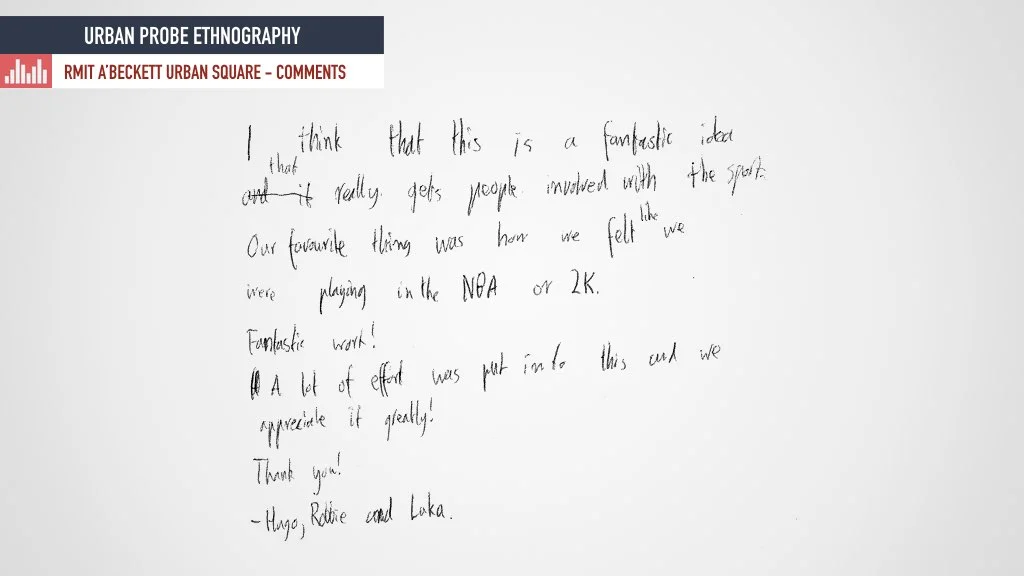 URBAN PROBE ETHNOGRAPHY
RMIT A'BECKETT URBAN SQUARE - COMMENTS
I think that this is a fantastic idea
that
and it really gets people involved with the sport.
Our favourite thing was how we felt like we
were playing in the NBA or 2K.
Fantastic work!
A lot of effort was put into this and we
appreciate it greatly!
Thank you!
- Hugo, Robbie and Luka.